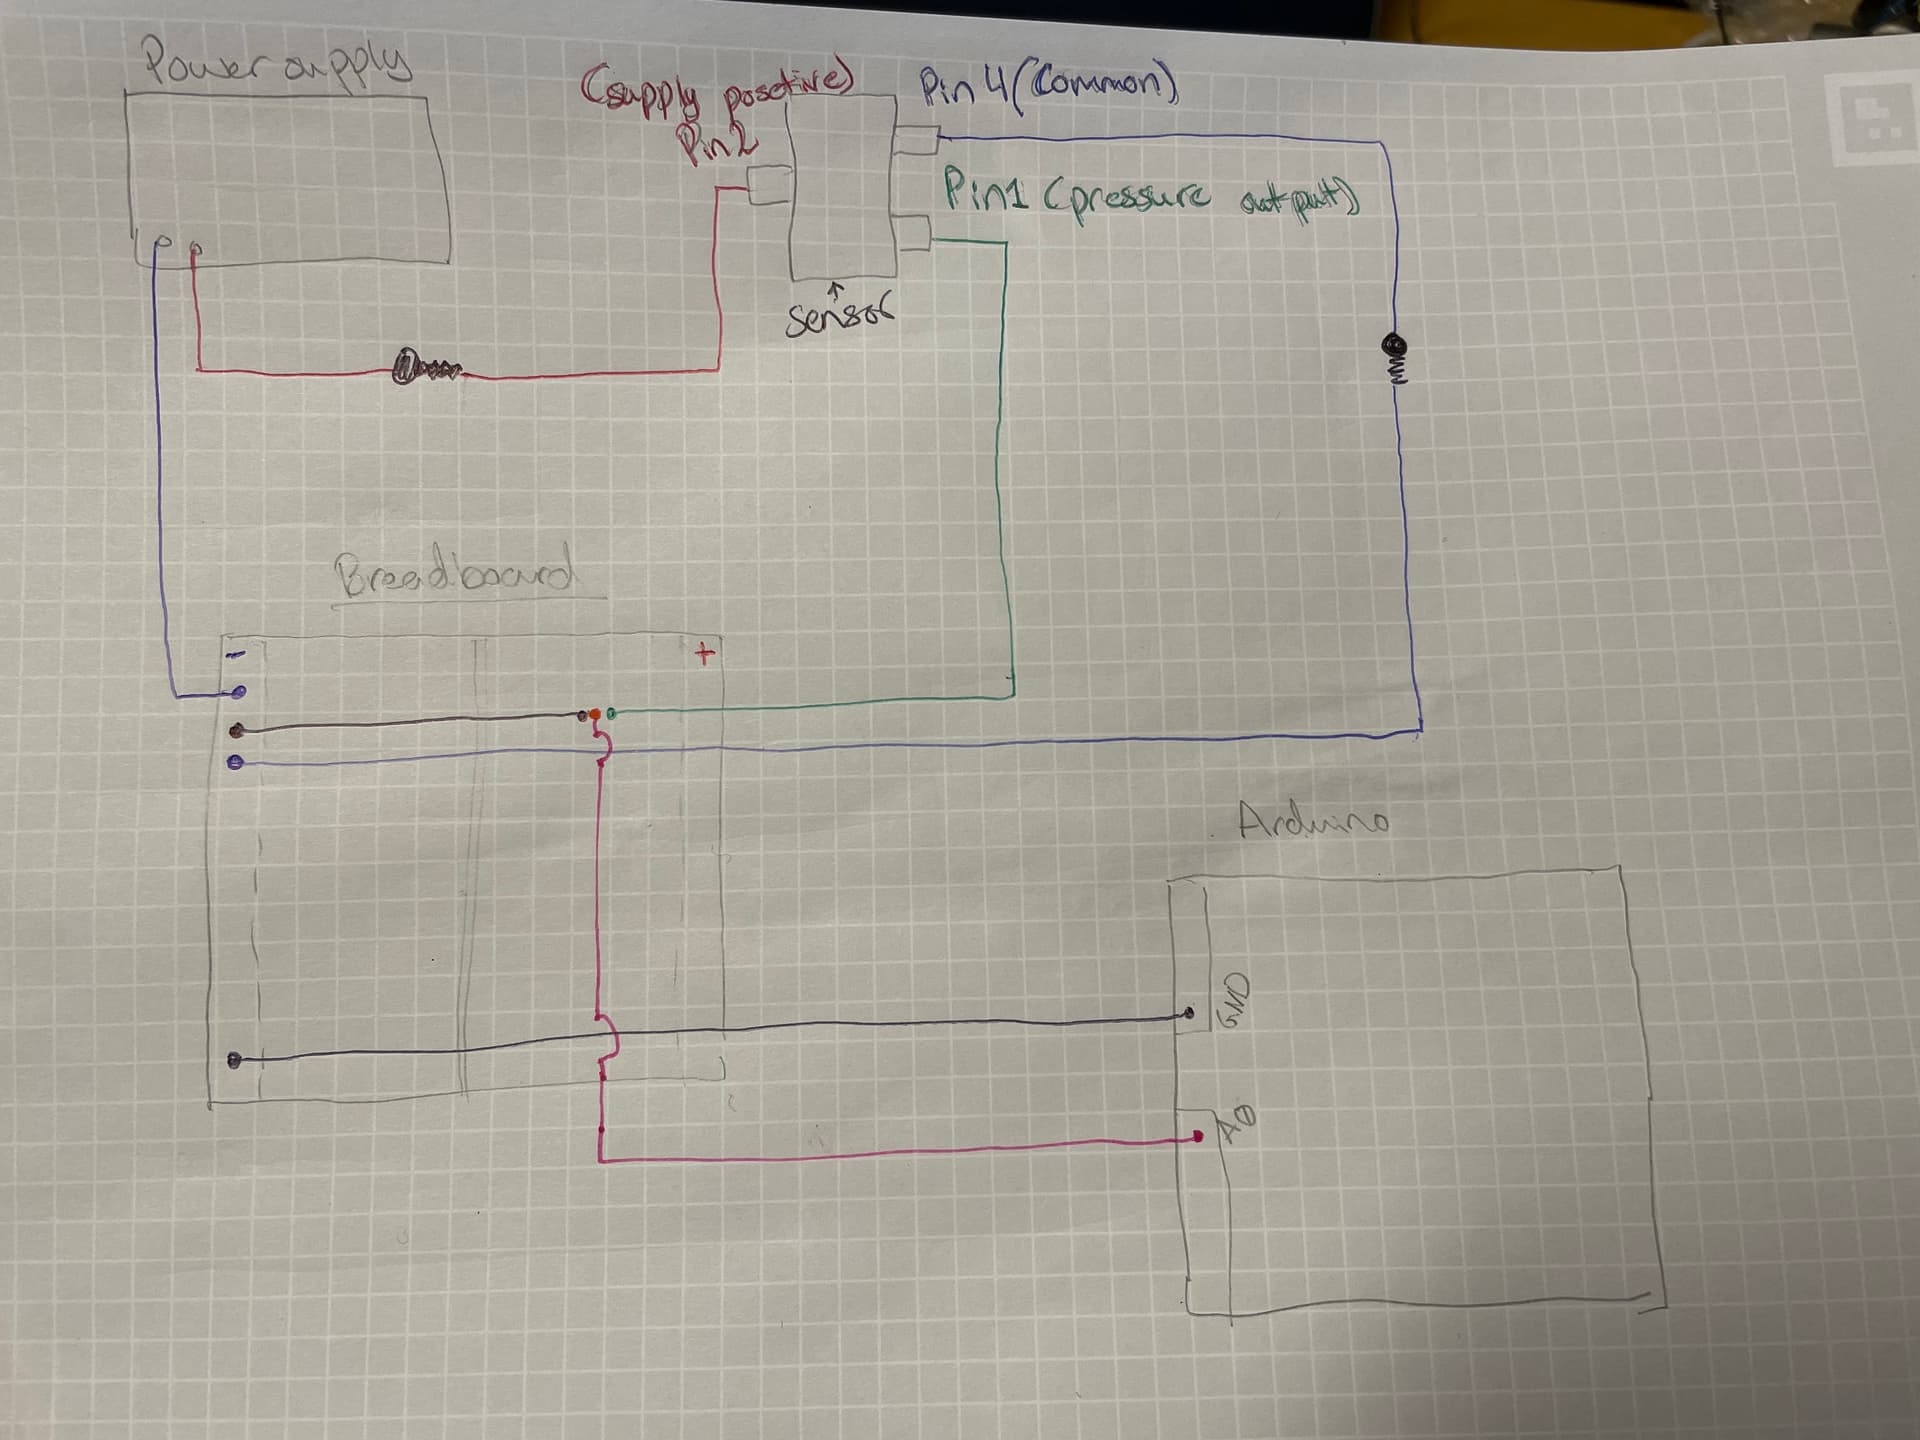 Power supply
(supply posetive)
Pin 2
Pin 4 (Common)
Pin1 (pressure output)
sensor
Breadboard
-
+
Arduino
GND
A0